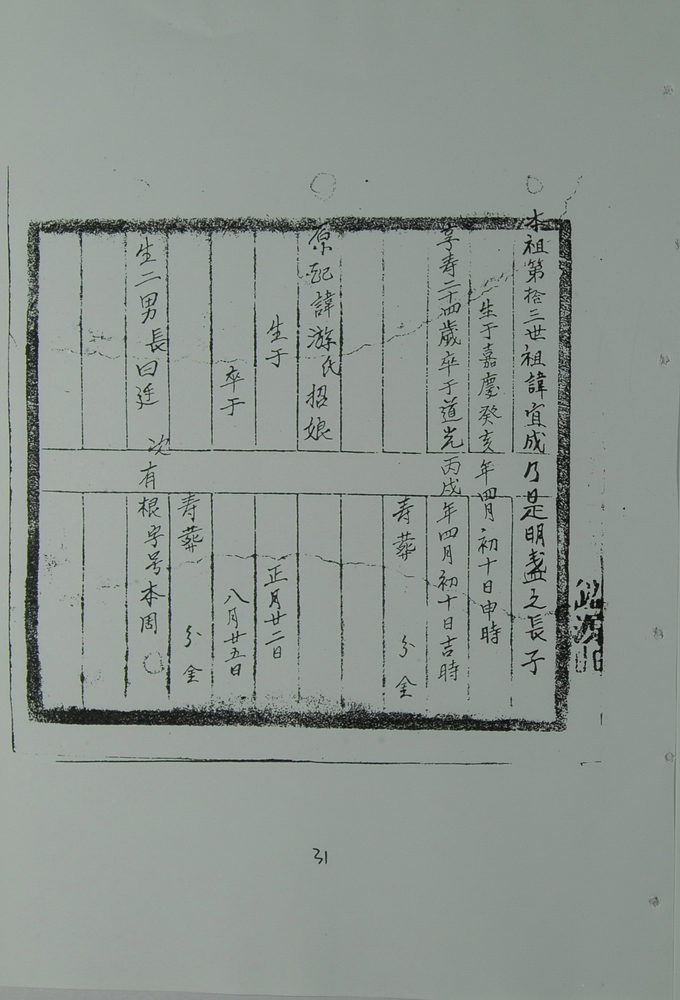 本祖第拾三世祖諱宜成乃是明盏之長子
生于嘉慶癸亥年四月初十日申時
享寿二十四歲卒于道光丙戌年四月初十日吉時
寿葬 分金
原配諱游氏招娘
生于 正月廿二日
卒于 八月廿五日
寿葬 分金
生二男長曰廷 次有根字号本周
31